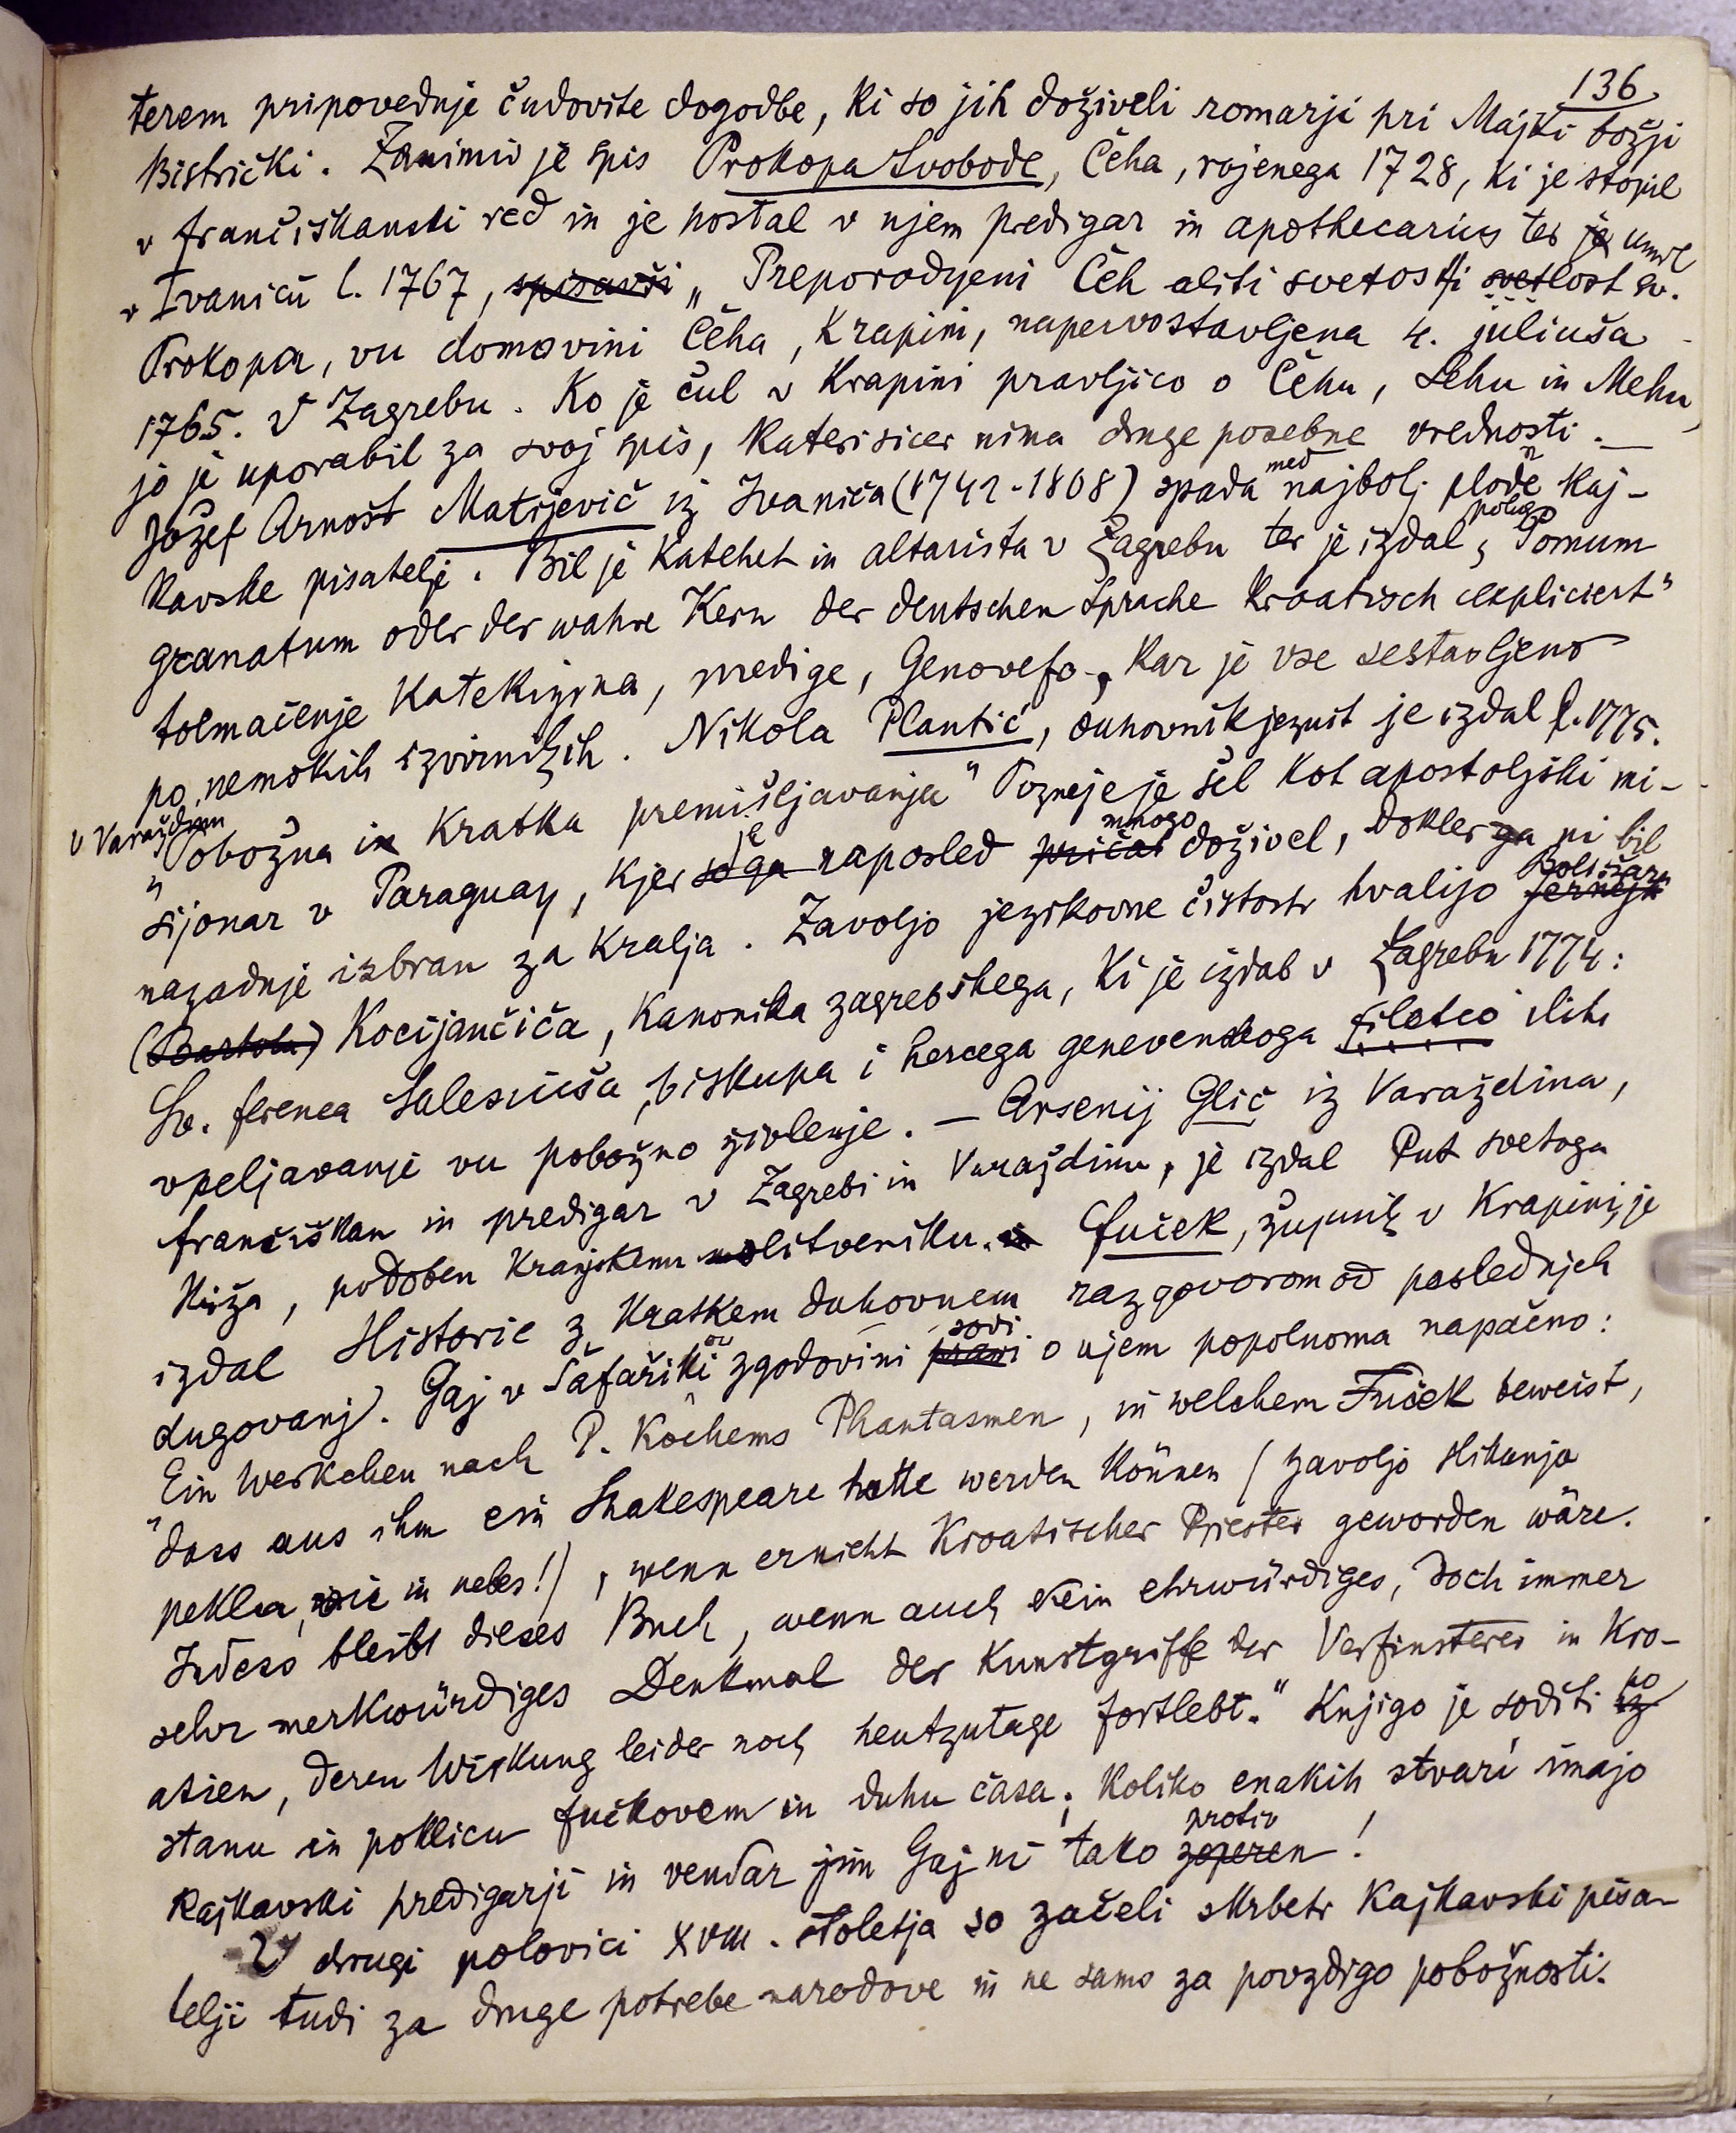 136
terem pripoveduje čudovite dogodbe, ki so jih doživeli romarji pri Majki božji
Bistrički. Zanimiv je spis Prokopa Svobode, Čeha, rojenega 1728, ki je stopil
v frančiškanski red in je postal v njem predigar in apothecarius ter je umrl
v Ivaniću l. 1767, spisavši „Preporodjeni Čeh aliti svetosti svetlost sv.
Prokopa, vu domovini Čeha, Krapini, napervostavljena 4. juliuša
1765. V Zagrebu. Ko je čul v Krapini pravljico o Čehu, Lehu in Mehu,
jo je uporabil za svoj spis, kateri sicer nima druge posebne vrednosti. —
Jožef Arnošt Matijević iz Ivaniča (1741-1808) spada med najbolj plodne kaj-
kavske pisatelje. Bil je katehet in altarista v Zagrebu ter je izdal poleg „Pomum
granatum oder der wahre Kern der deutschen Sprache kroatisch expliciert"
tolmačenje katekizma, predige, Genovefo, kar je vse sestavljeno
po nemških izvirnikih. Nikola Plantić, duhovnik jezuit je izdal l. 1775.
v Varaždinu „Pobožna in kratka premišljavanja" Pozneje je šel kot apostoljski mi-
sijonar v Paraguay, kjer so ga je naposled pričal mnogo doživel, dokler ga ni bil
nazadnje izbran za kralja. Zavoljo jezikovne čistosti hvalijo Jerneja Boltižara
(Bartola) Kocijančiča, kanonika zagrebškega, ki je izdal v Zagrebu 1774:
Sv. ferenca Salesiuša, biskupa i hercega genevenskoga filoteo iliti
vpeljavanje vu pobožno živlenje. — Arsenij Glič iz Varaždina,
frančiškan in predigar v Zagrebi in Varaždinu, je izdal Put svetoga
Križa, podoben kranjskemu molitveniku. Fuček, župnik v Krapini, je
izdal Historie z kratkem duhovnem razgovorom od poslednjeh
dugovanj. Gaj v Šafařikovi zgodovini pravi sodi o njem popolnoma napačno:
Ein Werkchen nach P. Kochems Phantasmen, in welchem Fuček beweist,
„dass aus ihm ein Shakespeare hatte werden können (zavoljo slikanja
pekla, vic in nebes!), wenn er nicht kroatischer Priester geworden wäre.
Indess bleibt dieses Buch, wenn auch kein ehrwürdiges, doch immer
sehr merkwürdiges Denkmal der Kunstgriffe der Verfinsterer in Kro-
atien, deren Wirkung leider noch heutzutage fortlebt." Knjigo je soditi iz po
stanu in poklicu Fučkovem in duhu časa; koliko enakih stvari imajo
kajkavski predigarji in vendar jim Gaj ni tako zoperen protiv!
V drugi polovici XVIII. stoletja so začeli skrbeti kajkavski pisa-
telji tudi za druge potrebe narodove in ne samo za povzdigo pobožnosti.